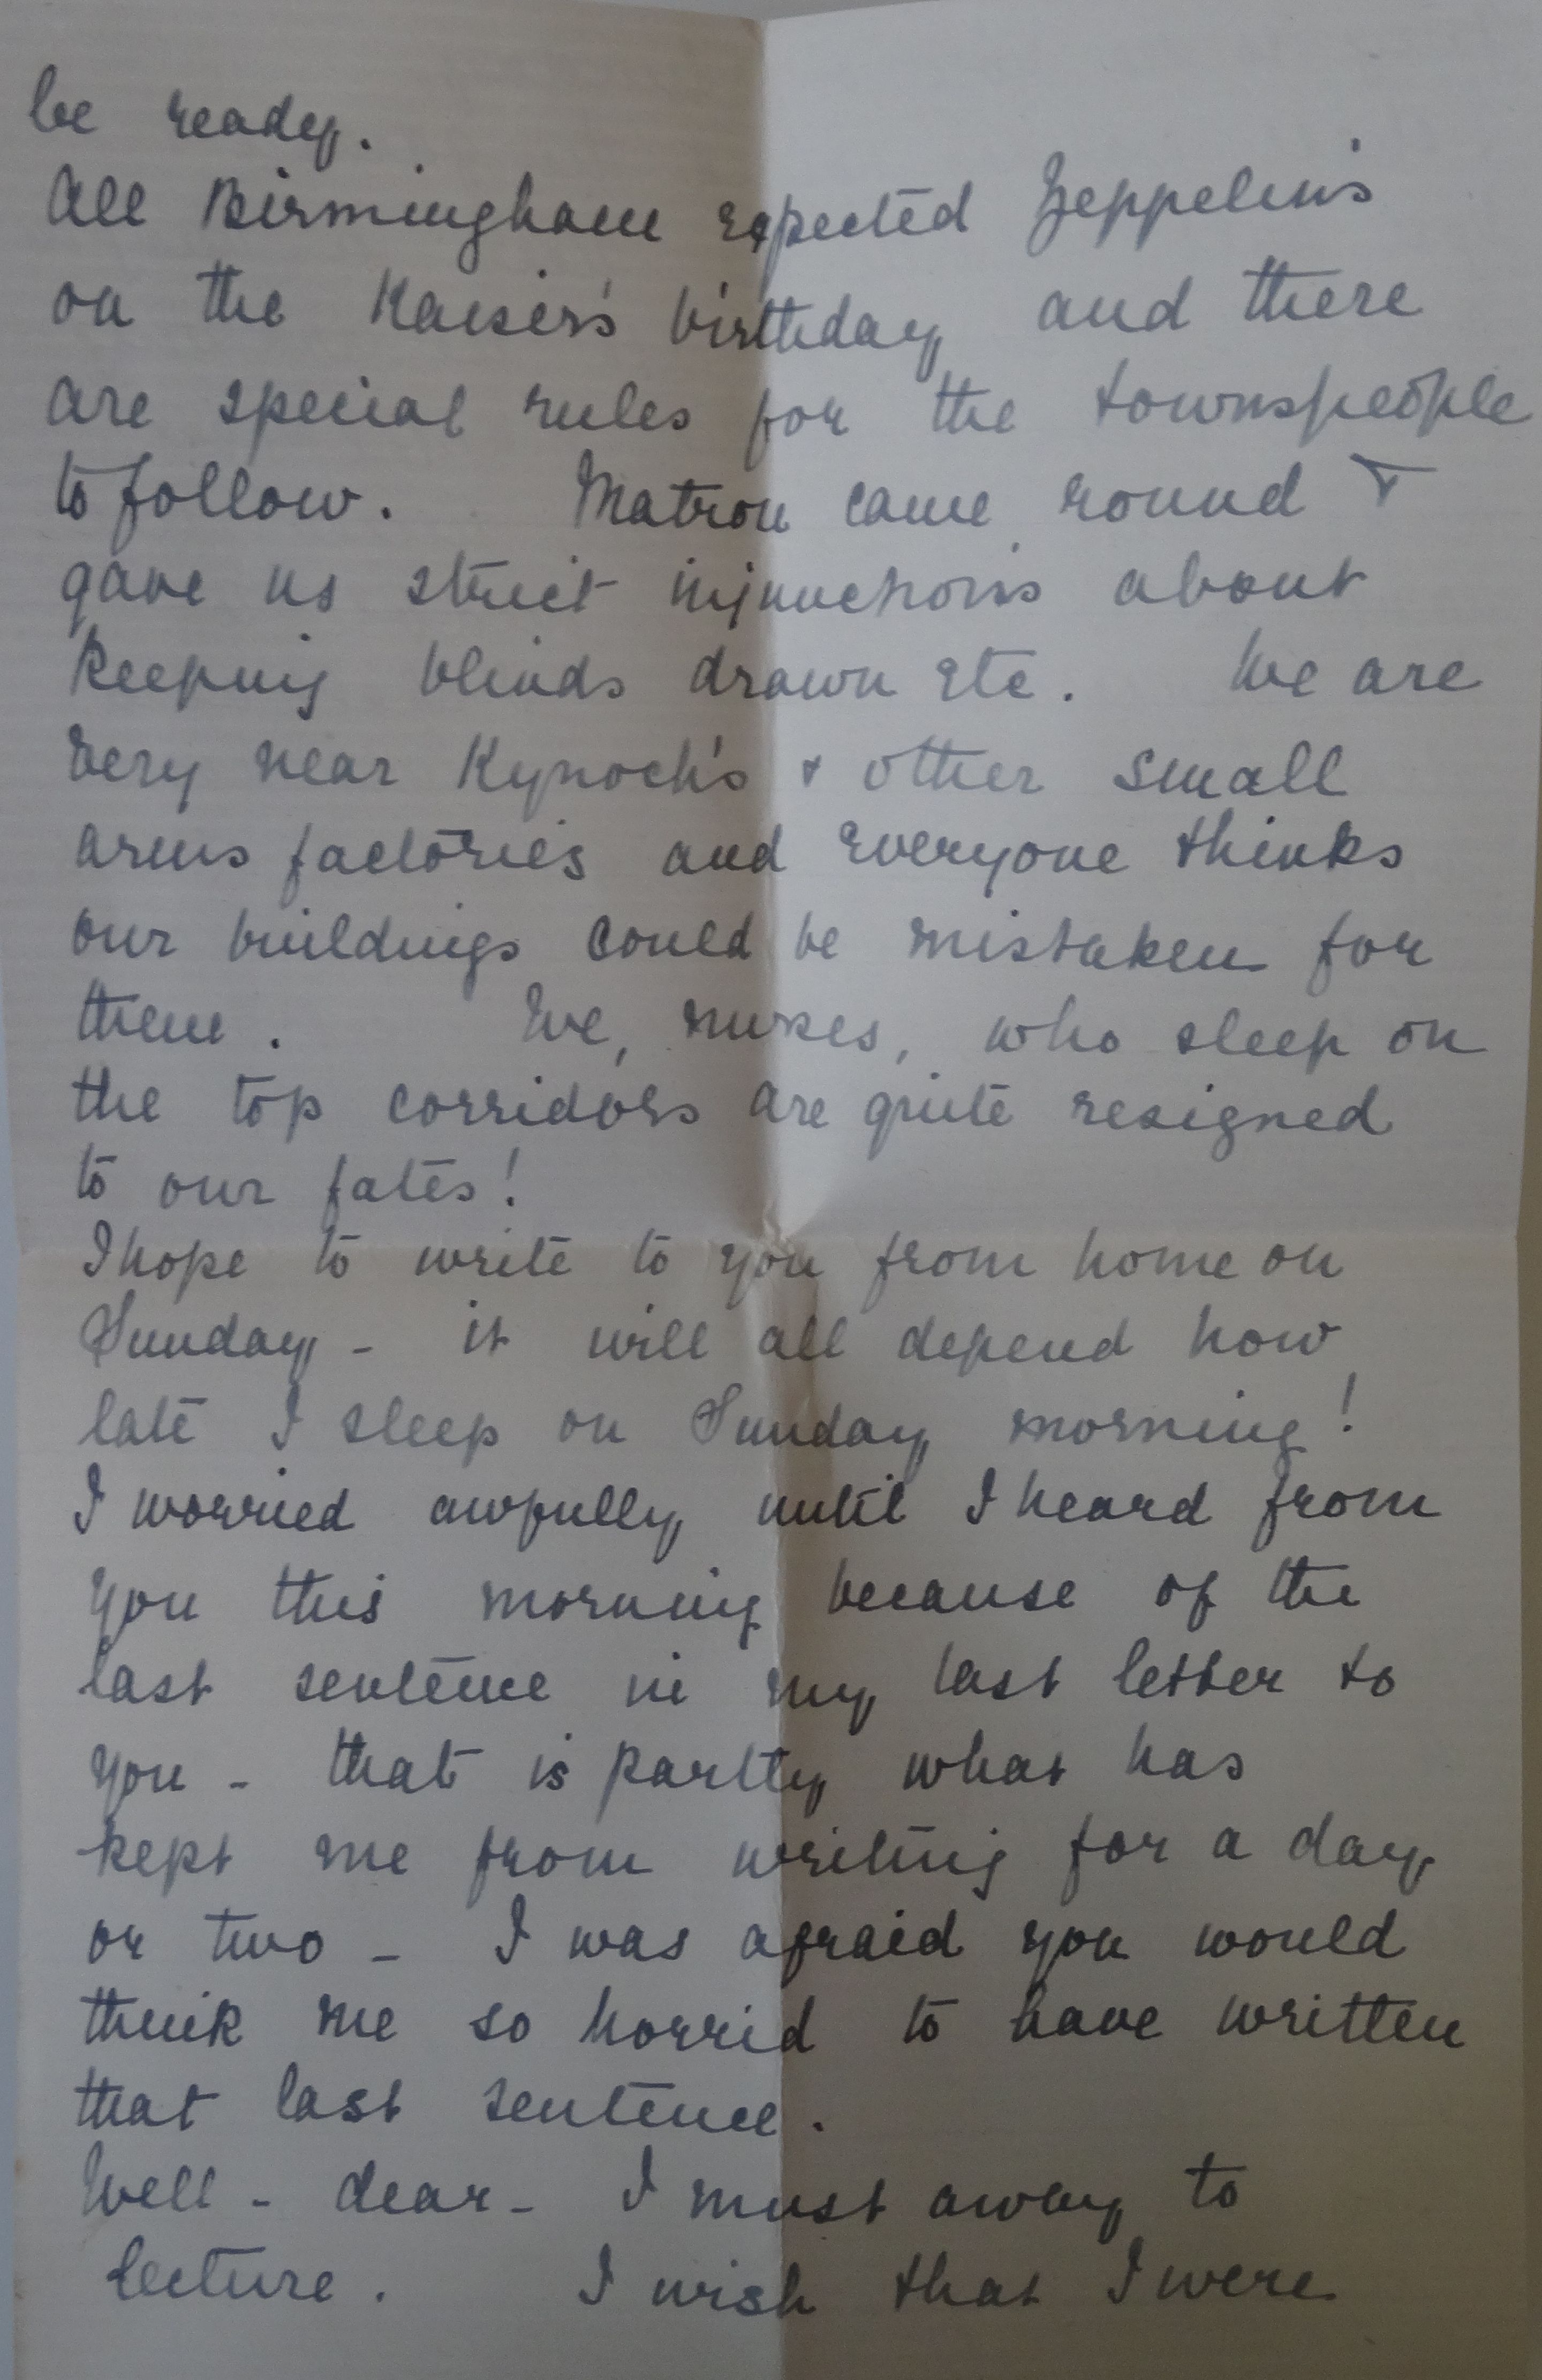 be ready.
All Birmingham expected Zeppelins
on the Kaiser's birthday and there
are special rules for the townspeople
to follow. Matron came round &
gave us strict injunctions about
keeping blinds drawn etc. We are
very near Kynoch's & other small
arms factories and everyone thinks
our buildings could be mistaken for
them. We, nurses, who sleep on
the top corridors are quite resigned
to our fates!
I hope to write to you from home on
Sunday - it will all depend how
late I sleep on Sunday morning!
I worried awfully until I heard from
you this morning because of the
last sentence in my last letter to
you - that is partly what has
kept me from writing for a day
or two - I was afraid you would
think me so horrid to have written
that last sentence.
Well - dear - I must away to
lecture. I wish that I were